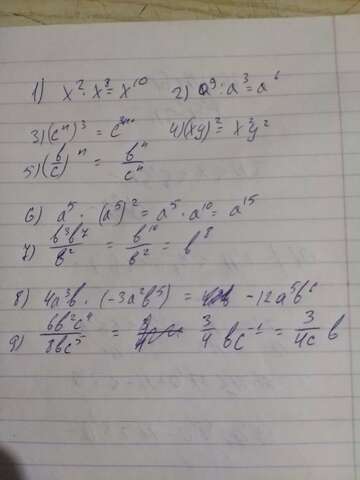 1) x² · x⁸ = x¹⁰ 2) a⁹ : a³ = a⁶
3) (cⁿ)³ = c³ⁿ 4) (xy)² = x²y²
5) (b/c)ⁿ = bⁿ/cⁿ
6) a⁵ · (a⁵)² = a⁵ · a¹⁰ = a¹⁵
7) b³b⁷/b² = b¹⁰/b² = b⁸
8) 4a³b · (-3a²b⁵) = -12a⁵b⁶
9) 6b²c⁴/8bc⁵ = 3/4 bc⁻¹ = 3/4c b